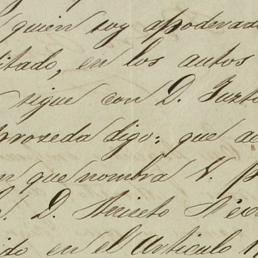 quien soy apoderado
itado, en los autos
sigue con D. Justo
proseda digo: que a
n que nombra V. p
D. Aniceto
ido en el Articulo 1